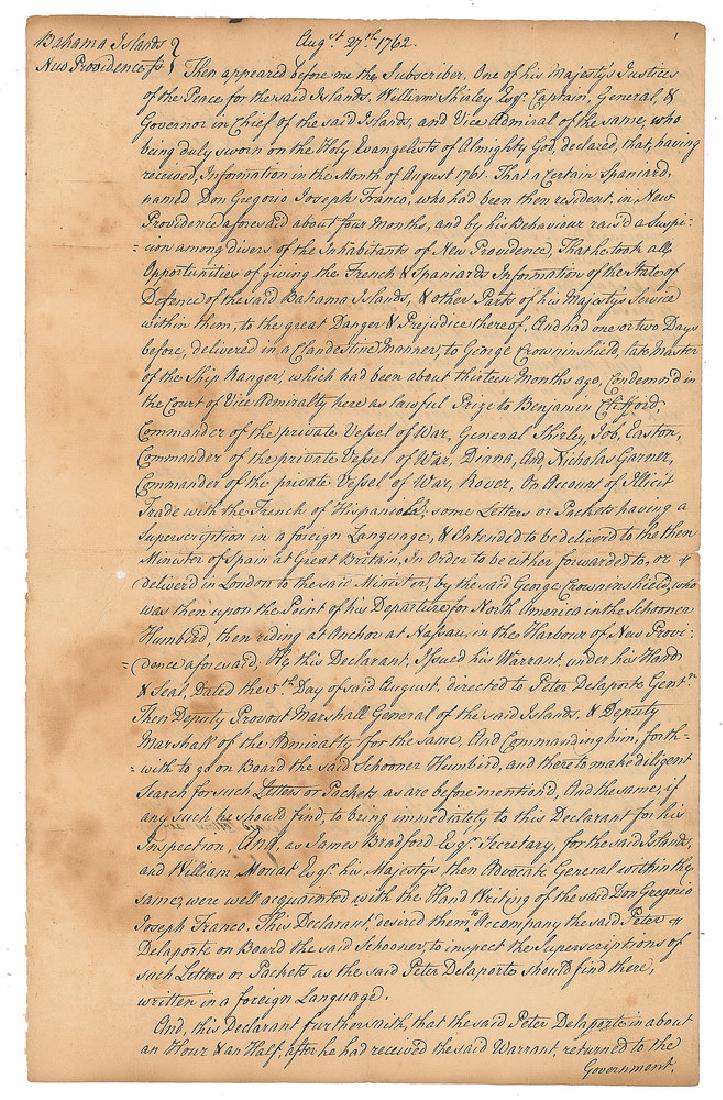 Bahama Islands } Augst. 27th. 1762. 1
New Providence ss }
Then appeared before me the Subscriber, One of his Majestys Justices
of the Peace for the said Islands, William Shirley Esqr. Captain, General, &
Governor in Chief of the said Islands, and Vice Admiral of the same, who
being duly sworn on the Holy Evangelists of Almighty God, declared, that, having
received, Information in the Month of August 1761. That a Certain Spaniard,
named Don Gregorio Joseph Franco, who had been then resident, in New
Providence aforesaid about four Months, and by his Behaviour rais'd a Suspi-
-cion among divers of the Inhabitants of New Providence, That he took all
Opportunities of giving the French & Spaniards Information of the State of
Defence of the said Bahama Islands, & other Parts of his Majestys Service
within them, to the great Danger & Prejudice thereof, And had one or two Days
before, delivered in a Clandestine Manner, to George Crowninshield, late Master
of the Ship Ranger, which had been about thirteen Months ago, Condemn'd in
the Court of Vice Admiralty here as lawful Prize to Benjamin Clifford,
Commander of the private Vessel of War, General Shirley, Job, Easton,
Commander of the private Vessel of War, Dianna, And, Nicholas Garner,
Commander of the private Vessel of War, Rover, On Account of Illicit
Trade with the French of Hispaniola; some Letters or Packets having a
Superscription in a foreign Language, & Intended to be deliverd to the then
Minister of Spain at Great Britain, In Order to be either forwarded to, or
deliverd in London to the said Minister, by the said George Crowninshield, who
was then upon the Point of his Departure for North America in the Schooner
Humbird, then riding at Anchor at Nassau, in the Harbour of New Provi-
=dence aforesaid; He, this Declarant, Issued his Warrant, under his Hand
& Seal, Dated the 5th Day of said August, directed to Peter Delaporte Gentn.
Then Deputy Provost Marshall General of the said Islands, & Deputy
Marshall of the Admiralty for the same, And Commanding him, forth-
=with to go on Board the said Schooner Humbird, and there to make diligent
Search for such Letters or Packets as are before mention'd, And the same, if
any such he should find, to bring immediately to this Declarant for his
Inspection, And, as James Bradford Esqr. Secretary, for the said Islands,
and William Mouat Esqr. his Majestys then Advocate General within the
same, were well acquainted with the Hand Writing of the said Don Gregorio
Joseph Franco, This Declarant, desired them to Accompany the said Peter
Delaporte on Board the said Schooner, to inspect the Superscriptions of
such Letters or Packets as the said Peter Delaporte should find there,
written in a foreign Language.
And, this Declarant further saith, that the said Peter Delaporte in about
an Hour & an Half, after he had received the said Warrant, returned to the
Government.